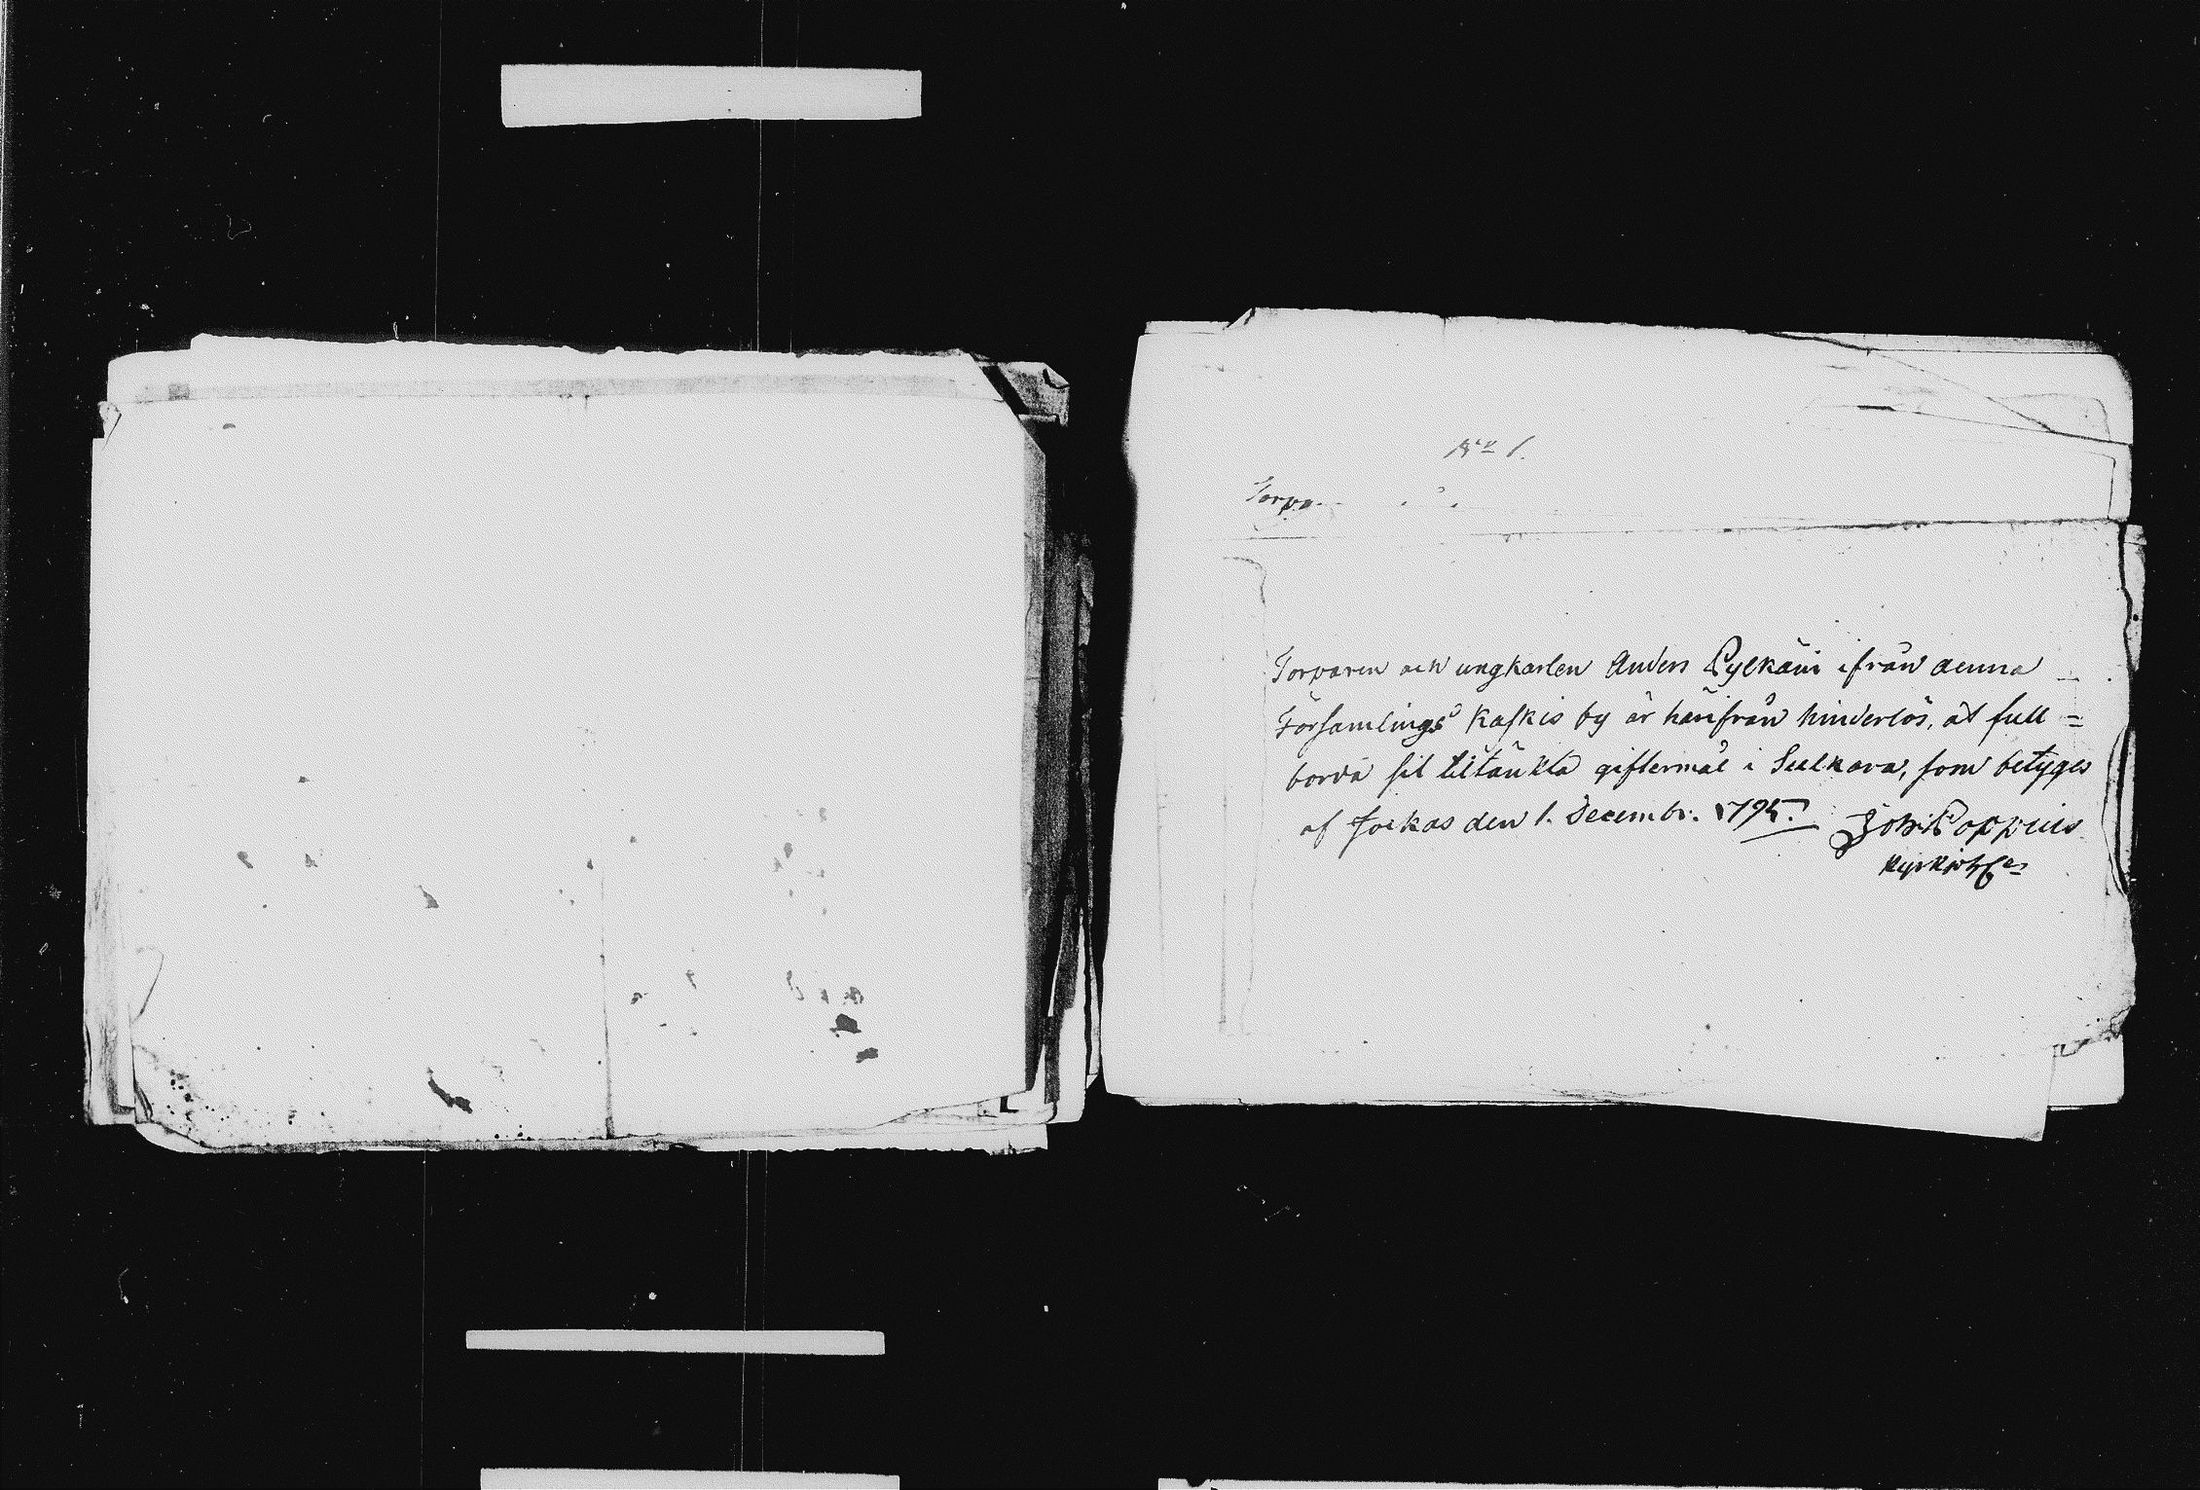 No 1.
Torpa
Torparen och ungkarlen Anders Pylkäin ifrån denna
Församlings Kaskis by är härifrån hinderlös, at full=
borda sit tiltänkta giftermål i Sulkava, som betyges
af Jockas den 1. Decembr. 1795. Joh: Poppius
Kyrkioh